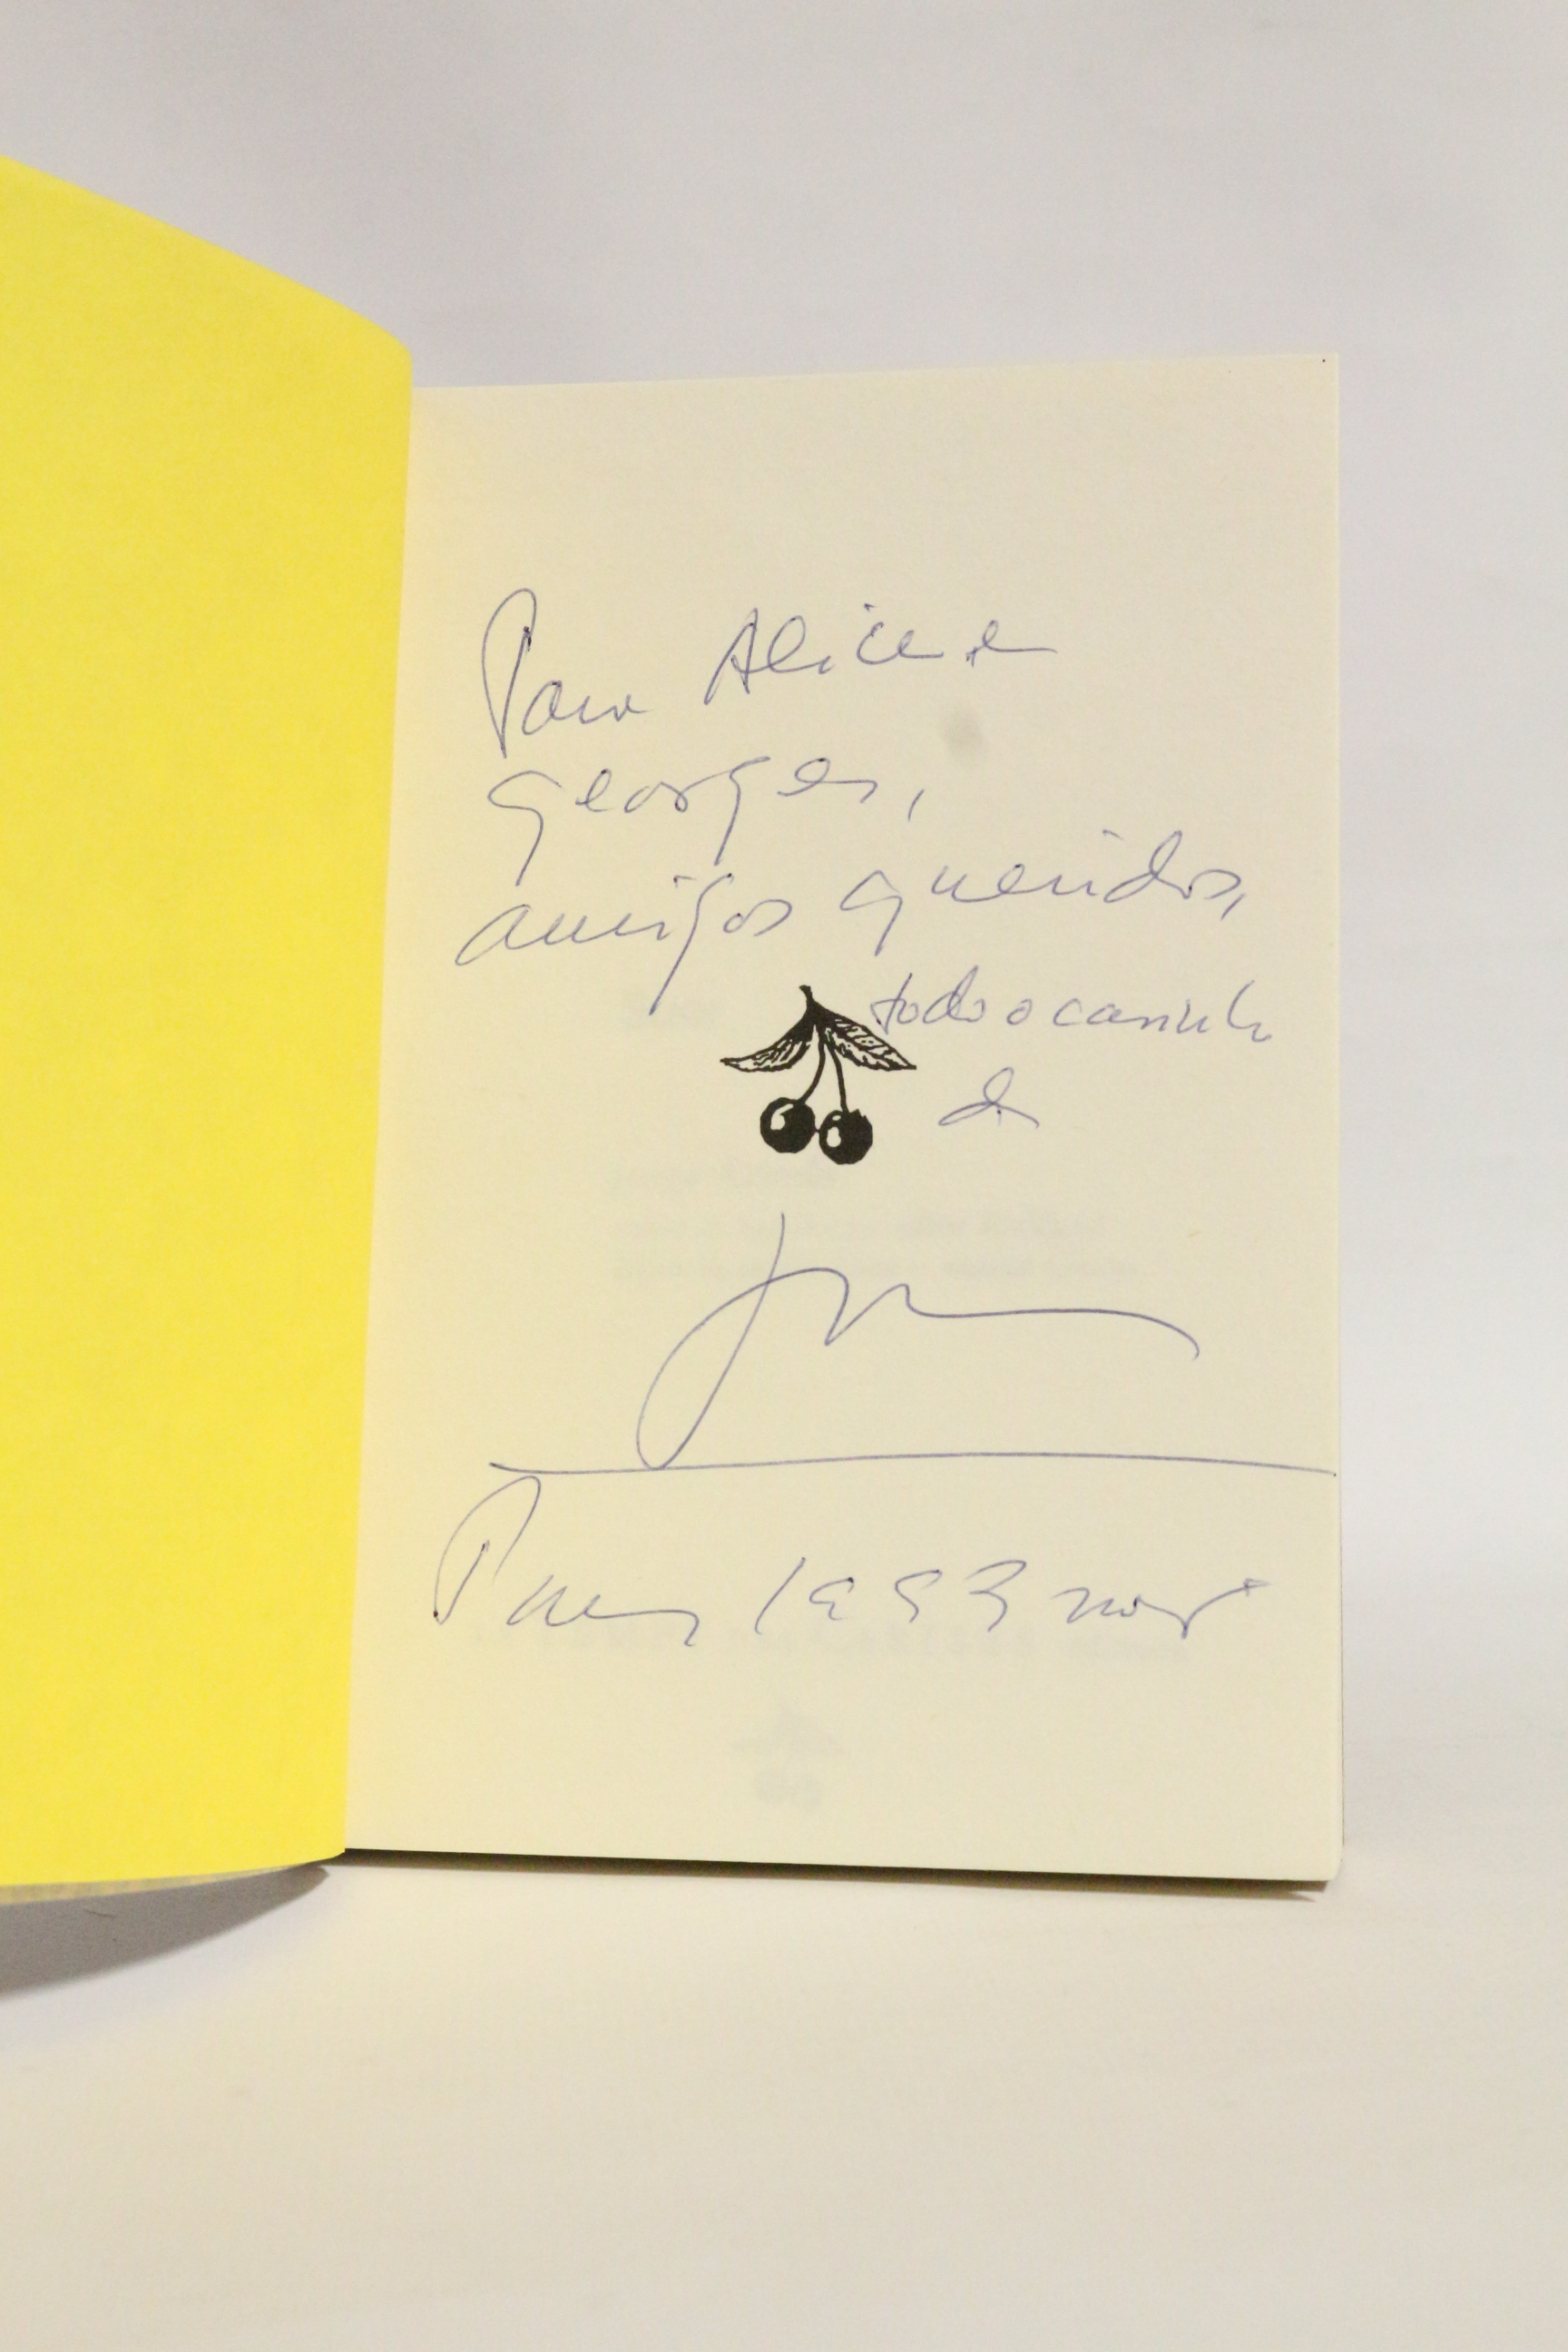 Para Alice e
Georges,
amigos queridos,
todo o carinho
de
Paris 1993 nov